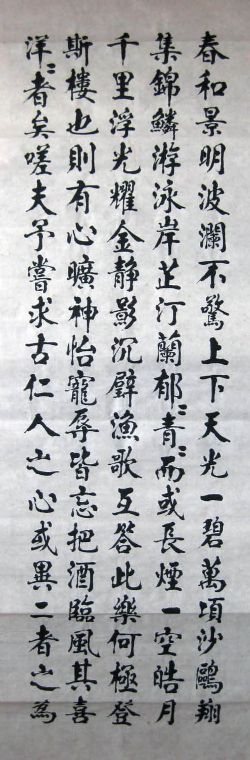 春和景明波瀾不驚上下天光一碧萬頃沙鷗翔
集錦鱗游泳岸芷汀蘭郁〻青〻而或長煙一空皓月
千里浮光耀金静影沉璧漁歌互答此樂何極登
斯樓也則有心曠神怡寵辱皆忘把酒臨風其喜
洋〻者矣嗟夫予嘗求古仁人之心或異二者之為